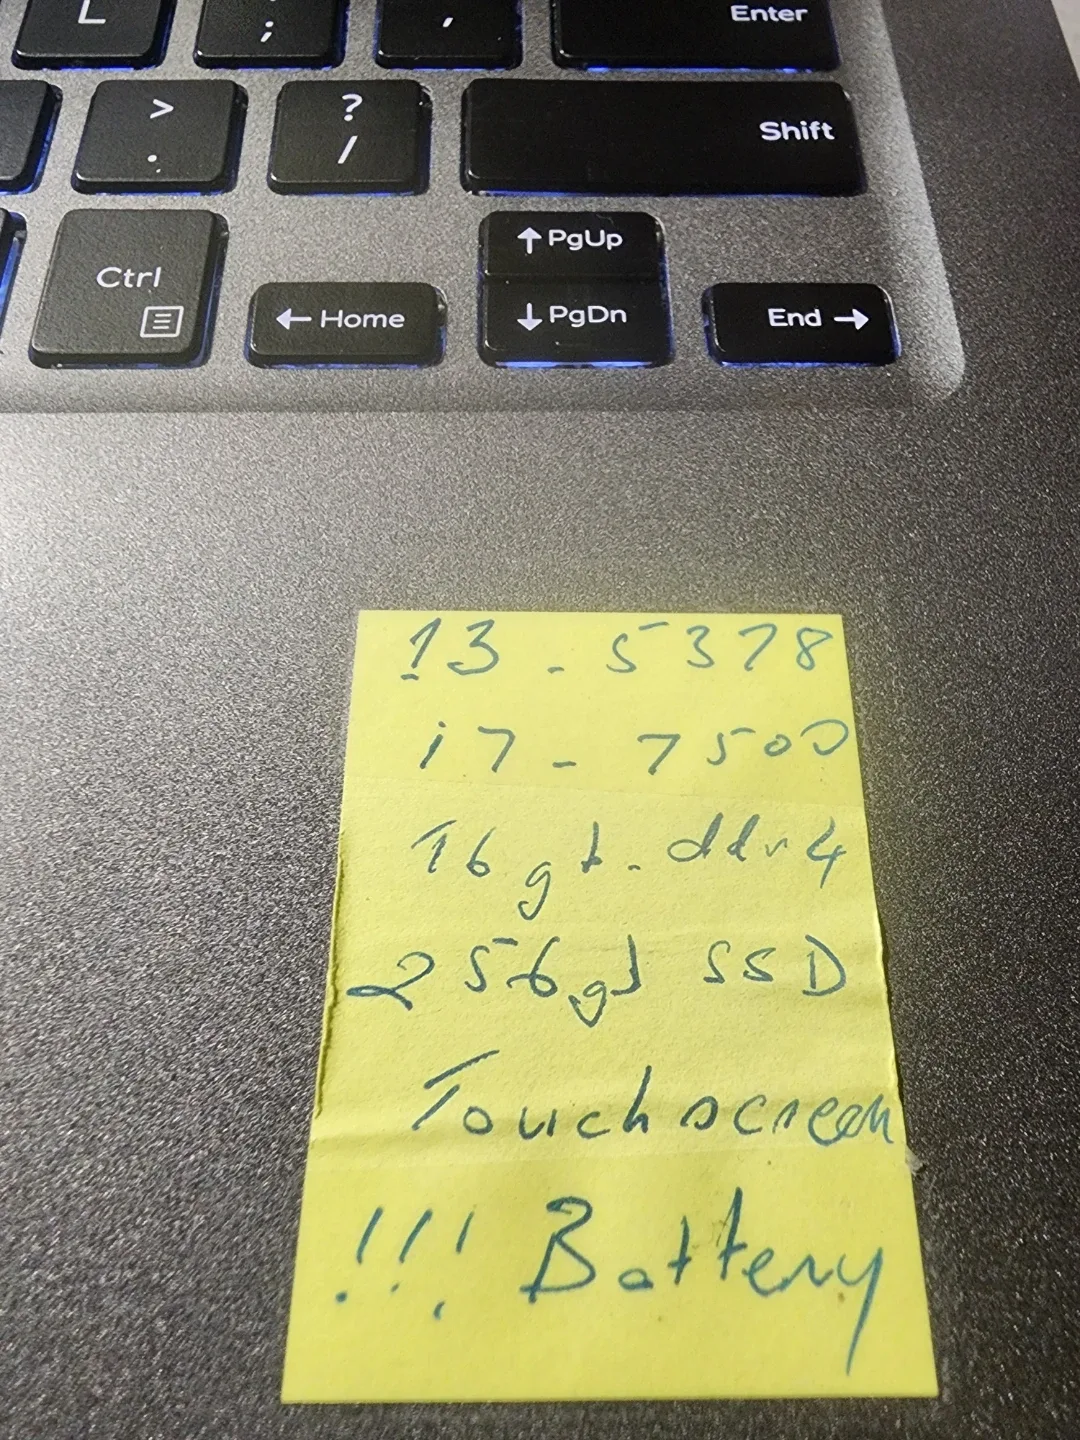 L : ; " ' Enter
> . ? / Shift
Ctrl ↑ PgUp
← Home ↓ PgDn End →
13 - 5378
i7 - 7500
16 gb. ddr4
256gb SSD
Touchscreen
!!! Battery